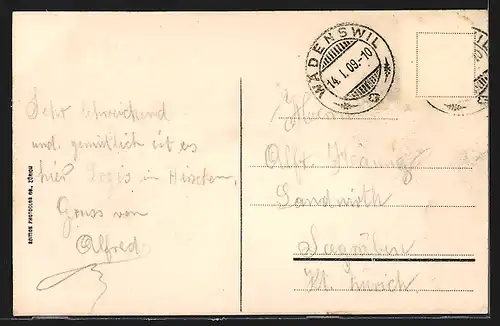 Sehr schneichend
und gemütlich ist es
hier Logis im Hirschen,
Gruss von
Alfred
EDITION PHOTOGLOB CO., ZÜRICH
WÄDENSWIL
14. I. 09.-10
Herrn
Alfr.
Landwirth
Seegräben
Kt. Zürich